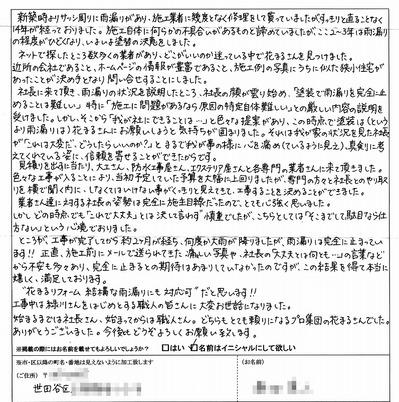 新築時よりサッシ周りに雨漏りがあり、施工業者に幾度となく修理をして貰っていましたがすっきりと直ることなく
14年が経っておりました。施工自体に何らかの不具合があるものと諦めていましたが、ここ2~3年は雨漏り
の程度がひどくなり、いよいよ塗替の決意をしました。
ネットで探したところ数多くの業者があり、どこがいいのか迷っている中で花まるさんを見つけました。
近所の会社であること、ホームページの情報が豊富であること、施工例の写真にうちに似た狭小住宅が
あったことが決め手となり問い合せすることにしました。
社長に来て頂き、雨漏りの状況を説明したところ、社長の顔が曇り始め、「塗装で雨漏りを完全に止
めることは難しい」特に「施工に問題があるなら原因の特定自体難しい」との厳しい内容の説明を
受けました。しかし、そこから「我が社にできることは…」と色々な提案があり、この時点で塗装は(という
より雨漏りは)花まるさんにお願いしようと気持ちが固まりました。それは我が家の状況を見た社長
が「これは大変だ。どうしたらいいのか?」とまるで我が事の様に心を痛めているように見え、真剣に考
えてくれている姿に、信頼を寄せることができたからです。
見積りを出すに当たり、大工さん、防水工事屋さん、エクステリア屋さんと各専門の業者さんに来て頂きました。
色々な工事が入ることにより、当初予定していた予算を大幅に上回りましたが、専門の方々と社長とのやり取
りを横で聞く内に、しなくてはいけない事がくっきりと見えてきて、工事することを決めることができました。
業者さん達に対する社長の姿勢は完全に施主目線だったので、とても心強く思いました。
しかし、どの時点でも「これで大丈夫」とは決して言わず慎重でしたが、こちらとしては「そこまでして駄目なら仕
方ない」という心境でおりました。
ところが、工事が完了してから約2ヶ月が経ち、何度か大雨が降りましたが、雨漏りは完全に止まってい
ます!!正直、施工前にメールで送られてきた痛ましい写真や、社長の「大丈夫とは何とも…」の言葉など
から不安も多々あり、完全に止まるとの期待はあまりしていなかったのですが、この結果を得て本当に
嬉しく、満足しております。
"花まるリフォーム 結構な雨漏りにも対応可"だと思います!!
工事中は緑川さんをはじめとする職人の皆さんに大変お世話になりました。
始まるまでは社長さん、始まってからは職人さん。どちらもとても頼りになるプロ集団の花まるさんでした。
ありがとうございました。今後ともどうぞよろしくお願いします。
※掲載の際にはお名前を載せてもよろしいでしょうか? □はい ☑名前はイニシャルにして欲しい
※市・区以降の町名・番地は見えないように加工致します
(ご住所) 〒
(お名前)
世田谷区